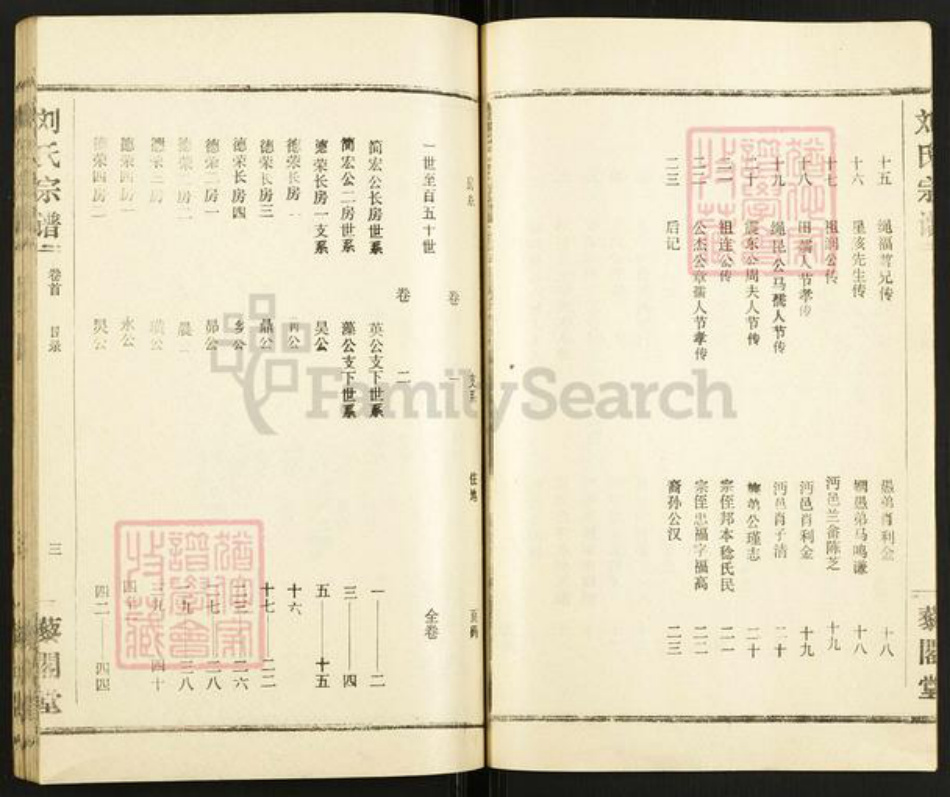 刘氏宗谱
藜閣堂
十五 绳福哲兄传 愚弟肖利金 十八
十六 星陔先生传 姻愚弟马鸣谦 十八
十七 祖润公传 沔邑兰畲陈芝 十九
十八 田孺人节孝传 沔邑肖利金 十九
十九 绳昆公马孺人节传 沔邑肖子清 二十
二十 震东公周夫人节传 公瑾志 二十
二一 祖连公传 宗侄邦本稔氏民 二一
二二 公杰公章孺人节孝传 宗侄忠福字福高 二二
二三 后记 裔孙公汉 二三
支系 住地 页码
卷一
一世至百五十世 全卷
卷二
简宏公长房世系 英公支下世系 一——二
简宏公二房世系 藻公支下世系 三——四
德荣长房一支系 昊公 五——十五
德荣长房二 公 十六
德荣长房三 晶公 十七——二二
德荣长房四 公 二三——二六
德荣二房一 昴公 二七——二八
德荣二房二 晨 二九——三八
德荣三房 公 三九——四十
德荣四房一 永公 四
德荣四房二 昊公 四二——四四
刘氏宗谱
卷首 目录
三
藜閣堂
FamilySearch